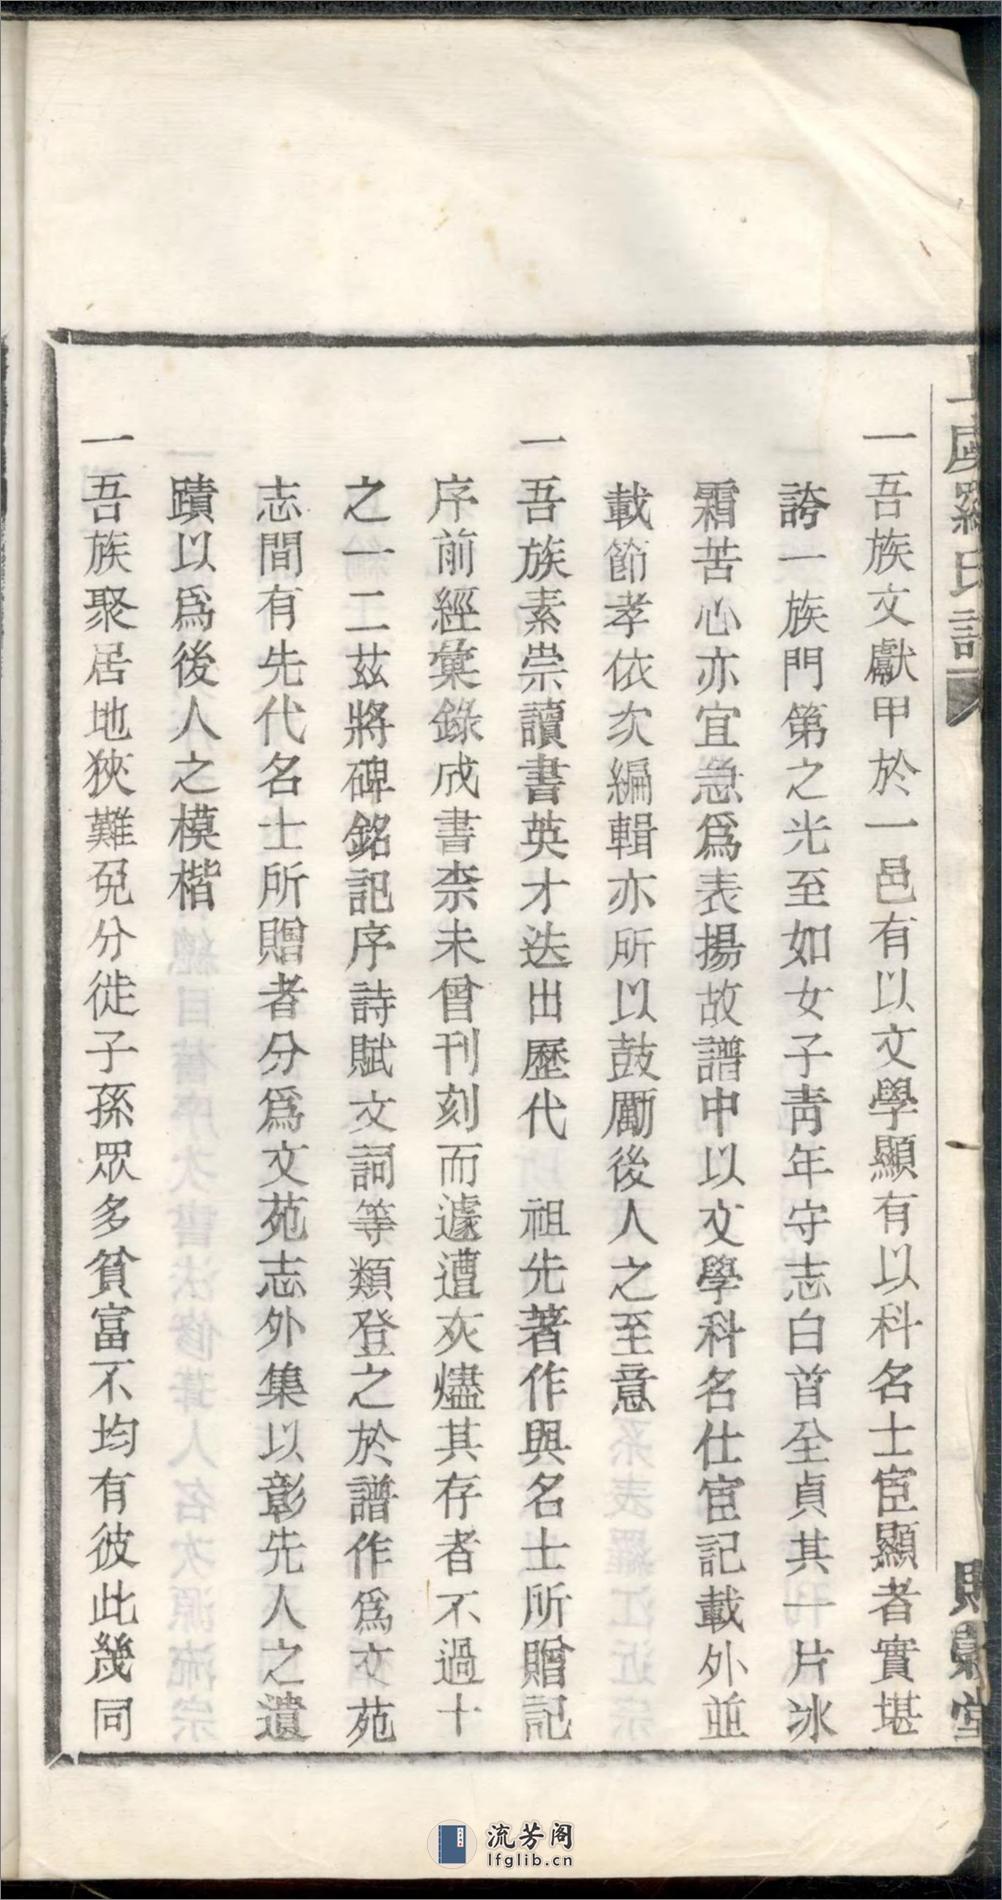 羅氏譜
一吾族文獻甲於一邑有以文學顯有以科名士宦顯者實堪
誇一族門第之光至如女子青年守志白首全貞其一片冰
霜苦心亦宜急爲表揚故譜中以文學科名仕宦記載外並
載節孝依次編輯亦所以鼓勵後人之至意
一吾族素崇讀書英才迭出歷代 祖先著作與名士所贈記
序前經彙錄成書柰未曾刊刻而遽遭灾燼其存者不過十
之一二茲將碑銘記序詩賦文詞等類登之於譜作爲文苑
志間有先代名士所贈者分爲文苑志外集以彰先人之遺
蹟以爲後人之模楷
一吾族聚居地狹難免分徙子孫眾多貧富不均有彼此幾同
流芳阁
lfglib.cn